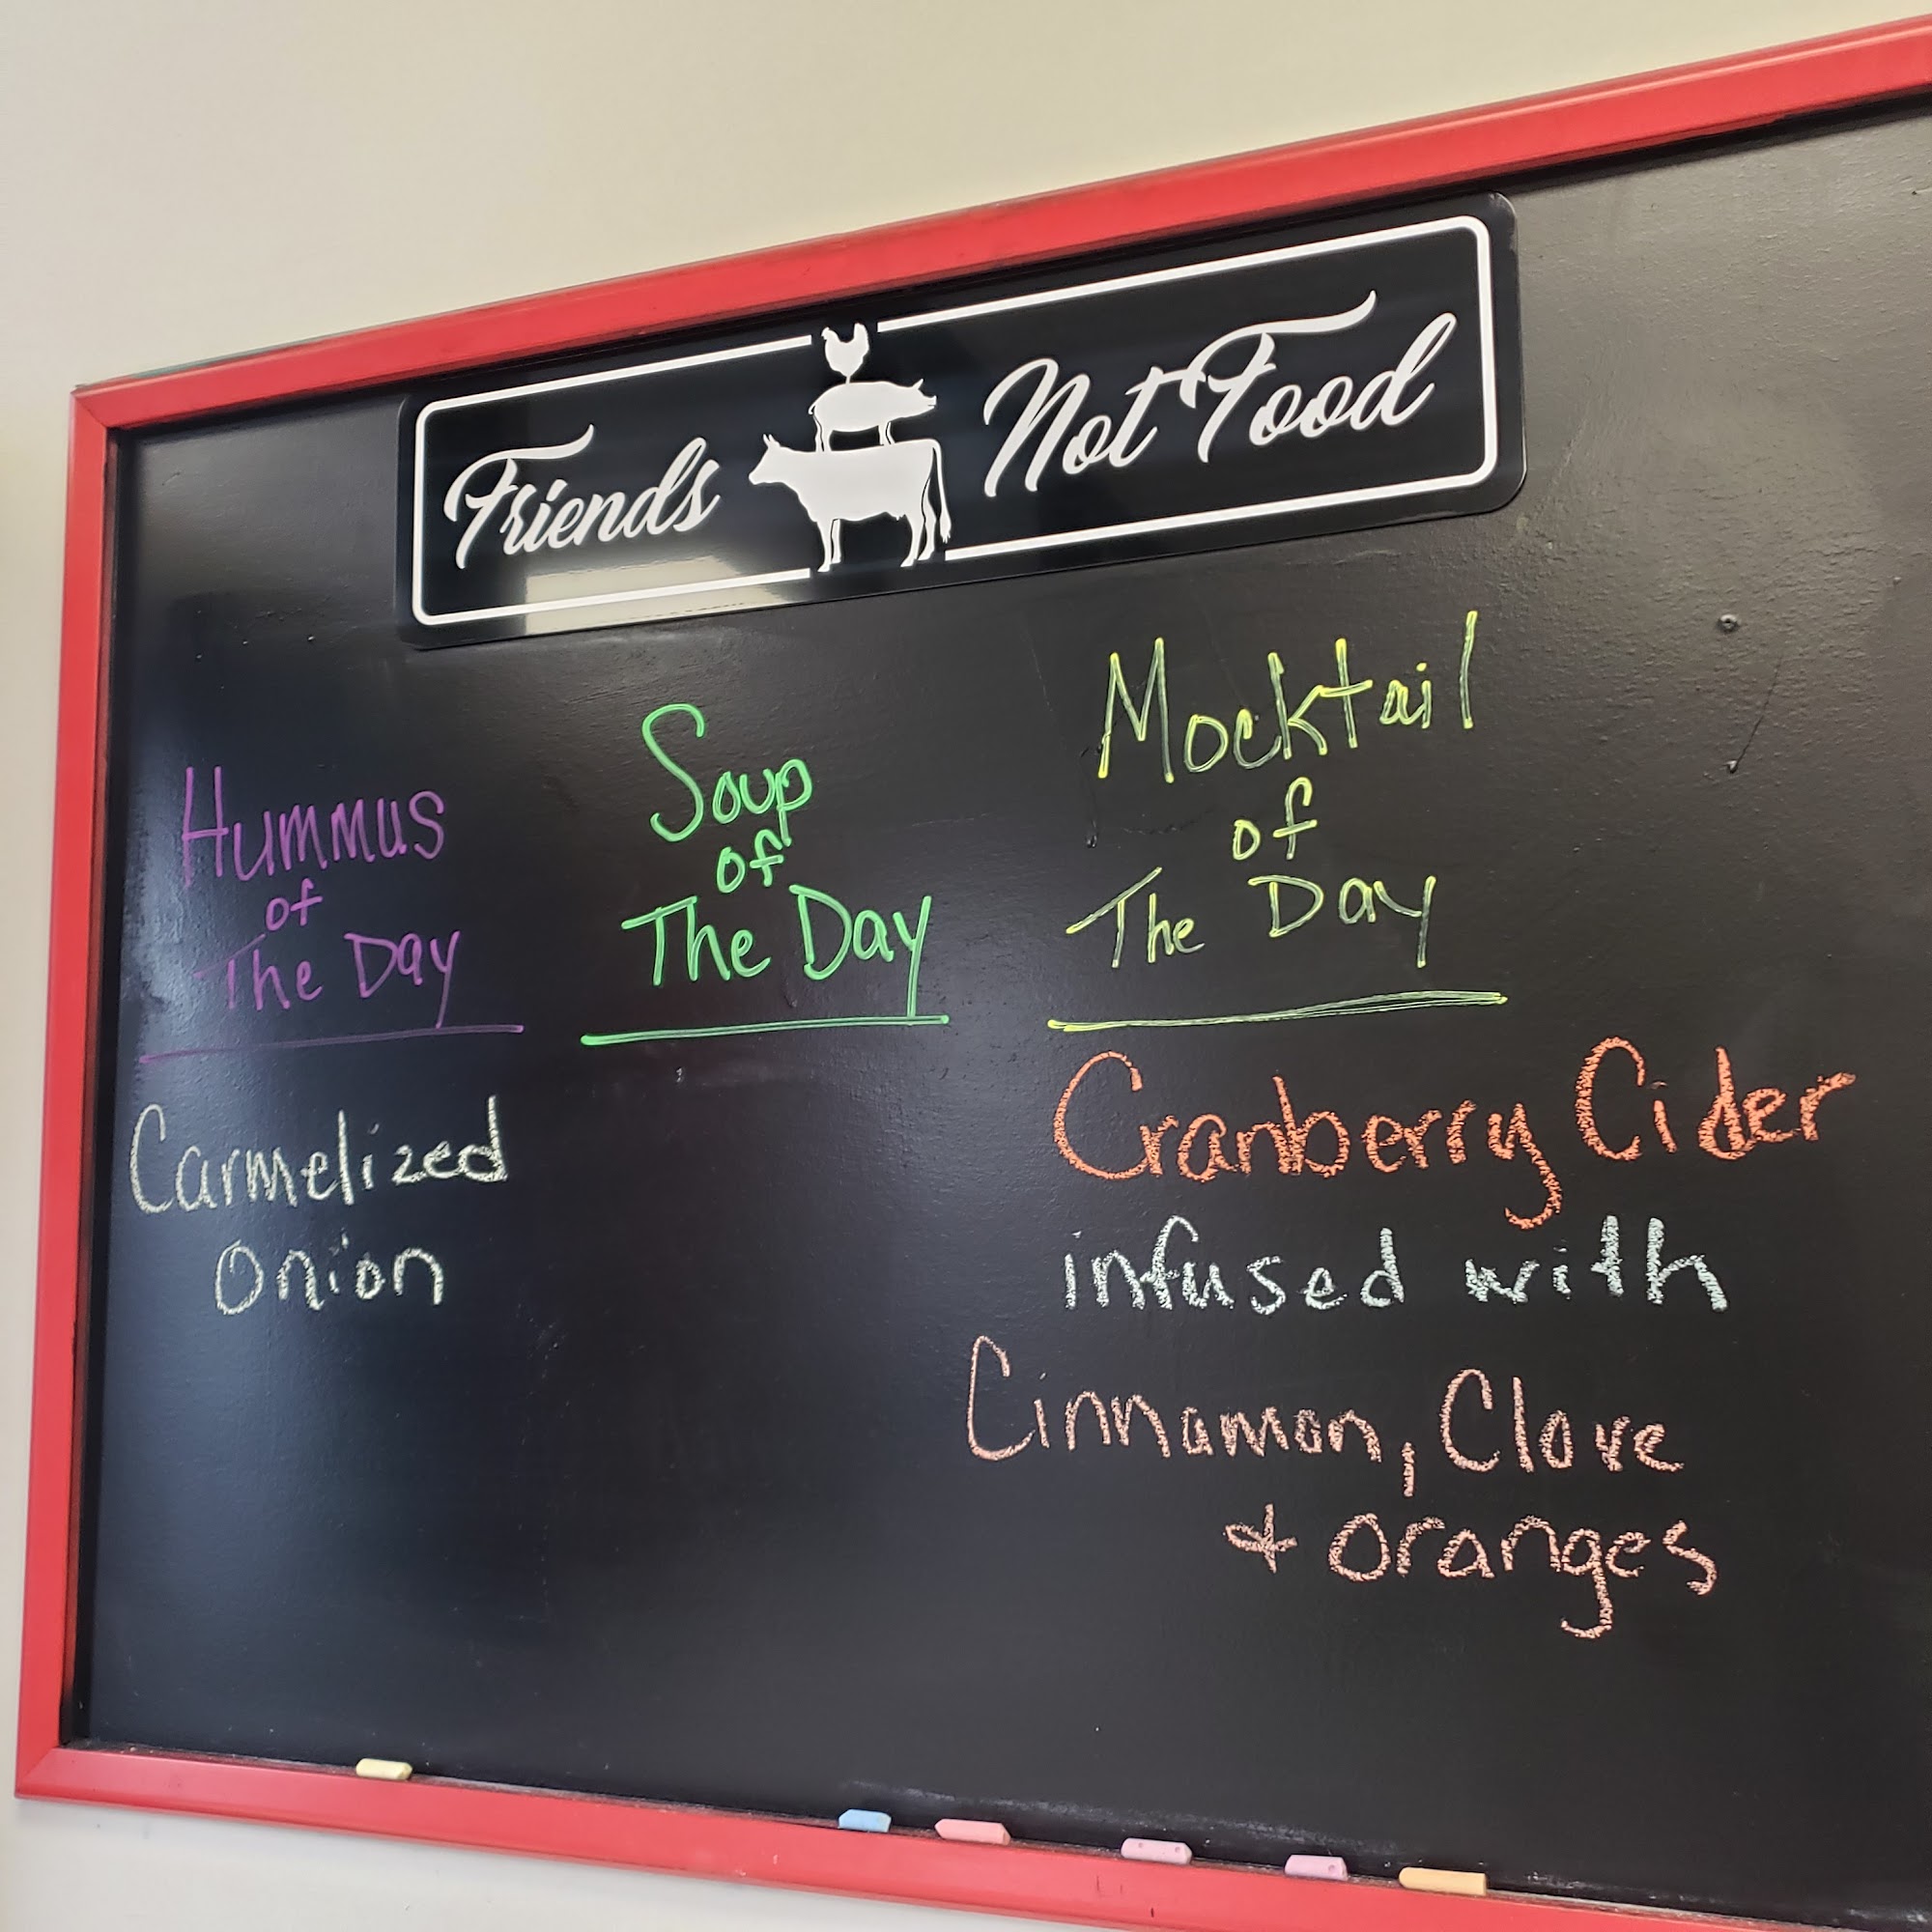 Friends Not Food
Hummus
of
The Day
Carmelized
Onion
Soup
of
The Day
Mocktail
of
The Day
Cranberry Cider
infused with
Cinnamon, Clove
& oranges